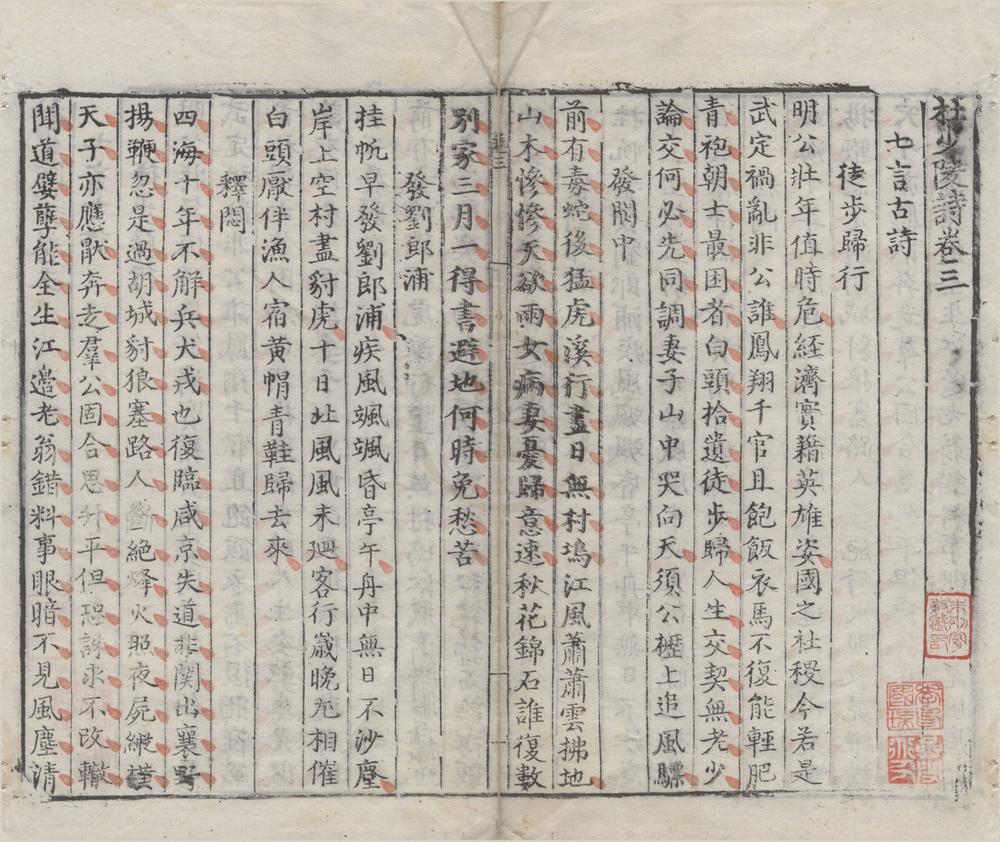 杜少陵詩卷三
七言古詩
徒步歸行
明公壯年值時危經濟實籍英雄姿國之社稷今若是
武定禍亂非公誰鳳翔千官且飽飯衣馬不復能輕肥
青袍朝士最困者白頭拾遺徒步歸人生交契無老少
論交何必先同調妻子山中哭向天須公櫪上追風驃
發閬中
前有毒蛇後猛虎溪行盡日無村塢江風蕭蕭雲拂地
山木慘慘天欲雨女病妻憂歸意速秋花錦石誰復數
別家三月一得書避地何時免愁苦
發劉郎浦
挂帆早發劉郎浦疾風颯颯昏亭午舟中無日不沙塵
岸上空村盡豺虎十日北風風未廻客行歲晚尤相催
白頭厭伴漁人宿黄帽青鞋歸去來
釋悶
四海十年不解兵犬戎也復臨咸京失道非関出襄野
揚鞭忽是過胡城豺狼塞路人斷絕烽火照夜屍縱橫
天子亦應厭奔走羣公固合思升平但恐誅求不改轍
聞道嬖孽能全生江邊老翁錯料事眼暗不見風塵清